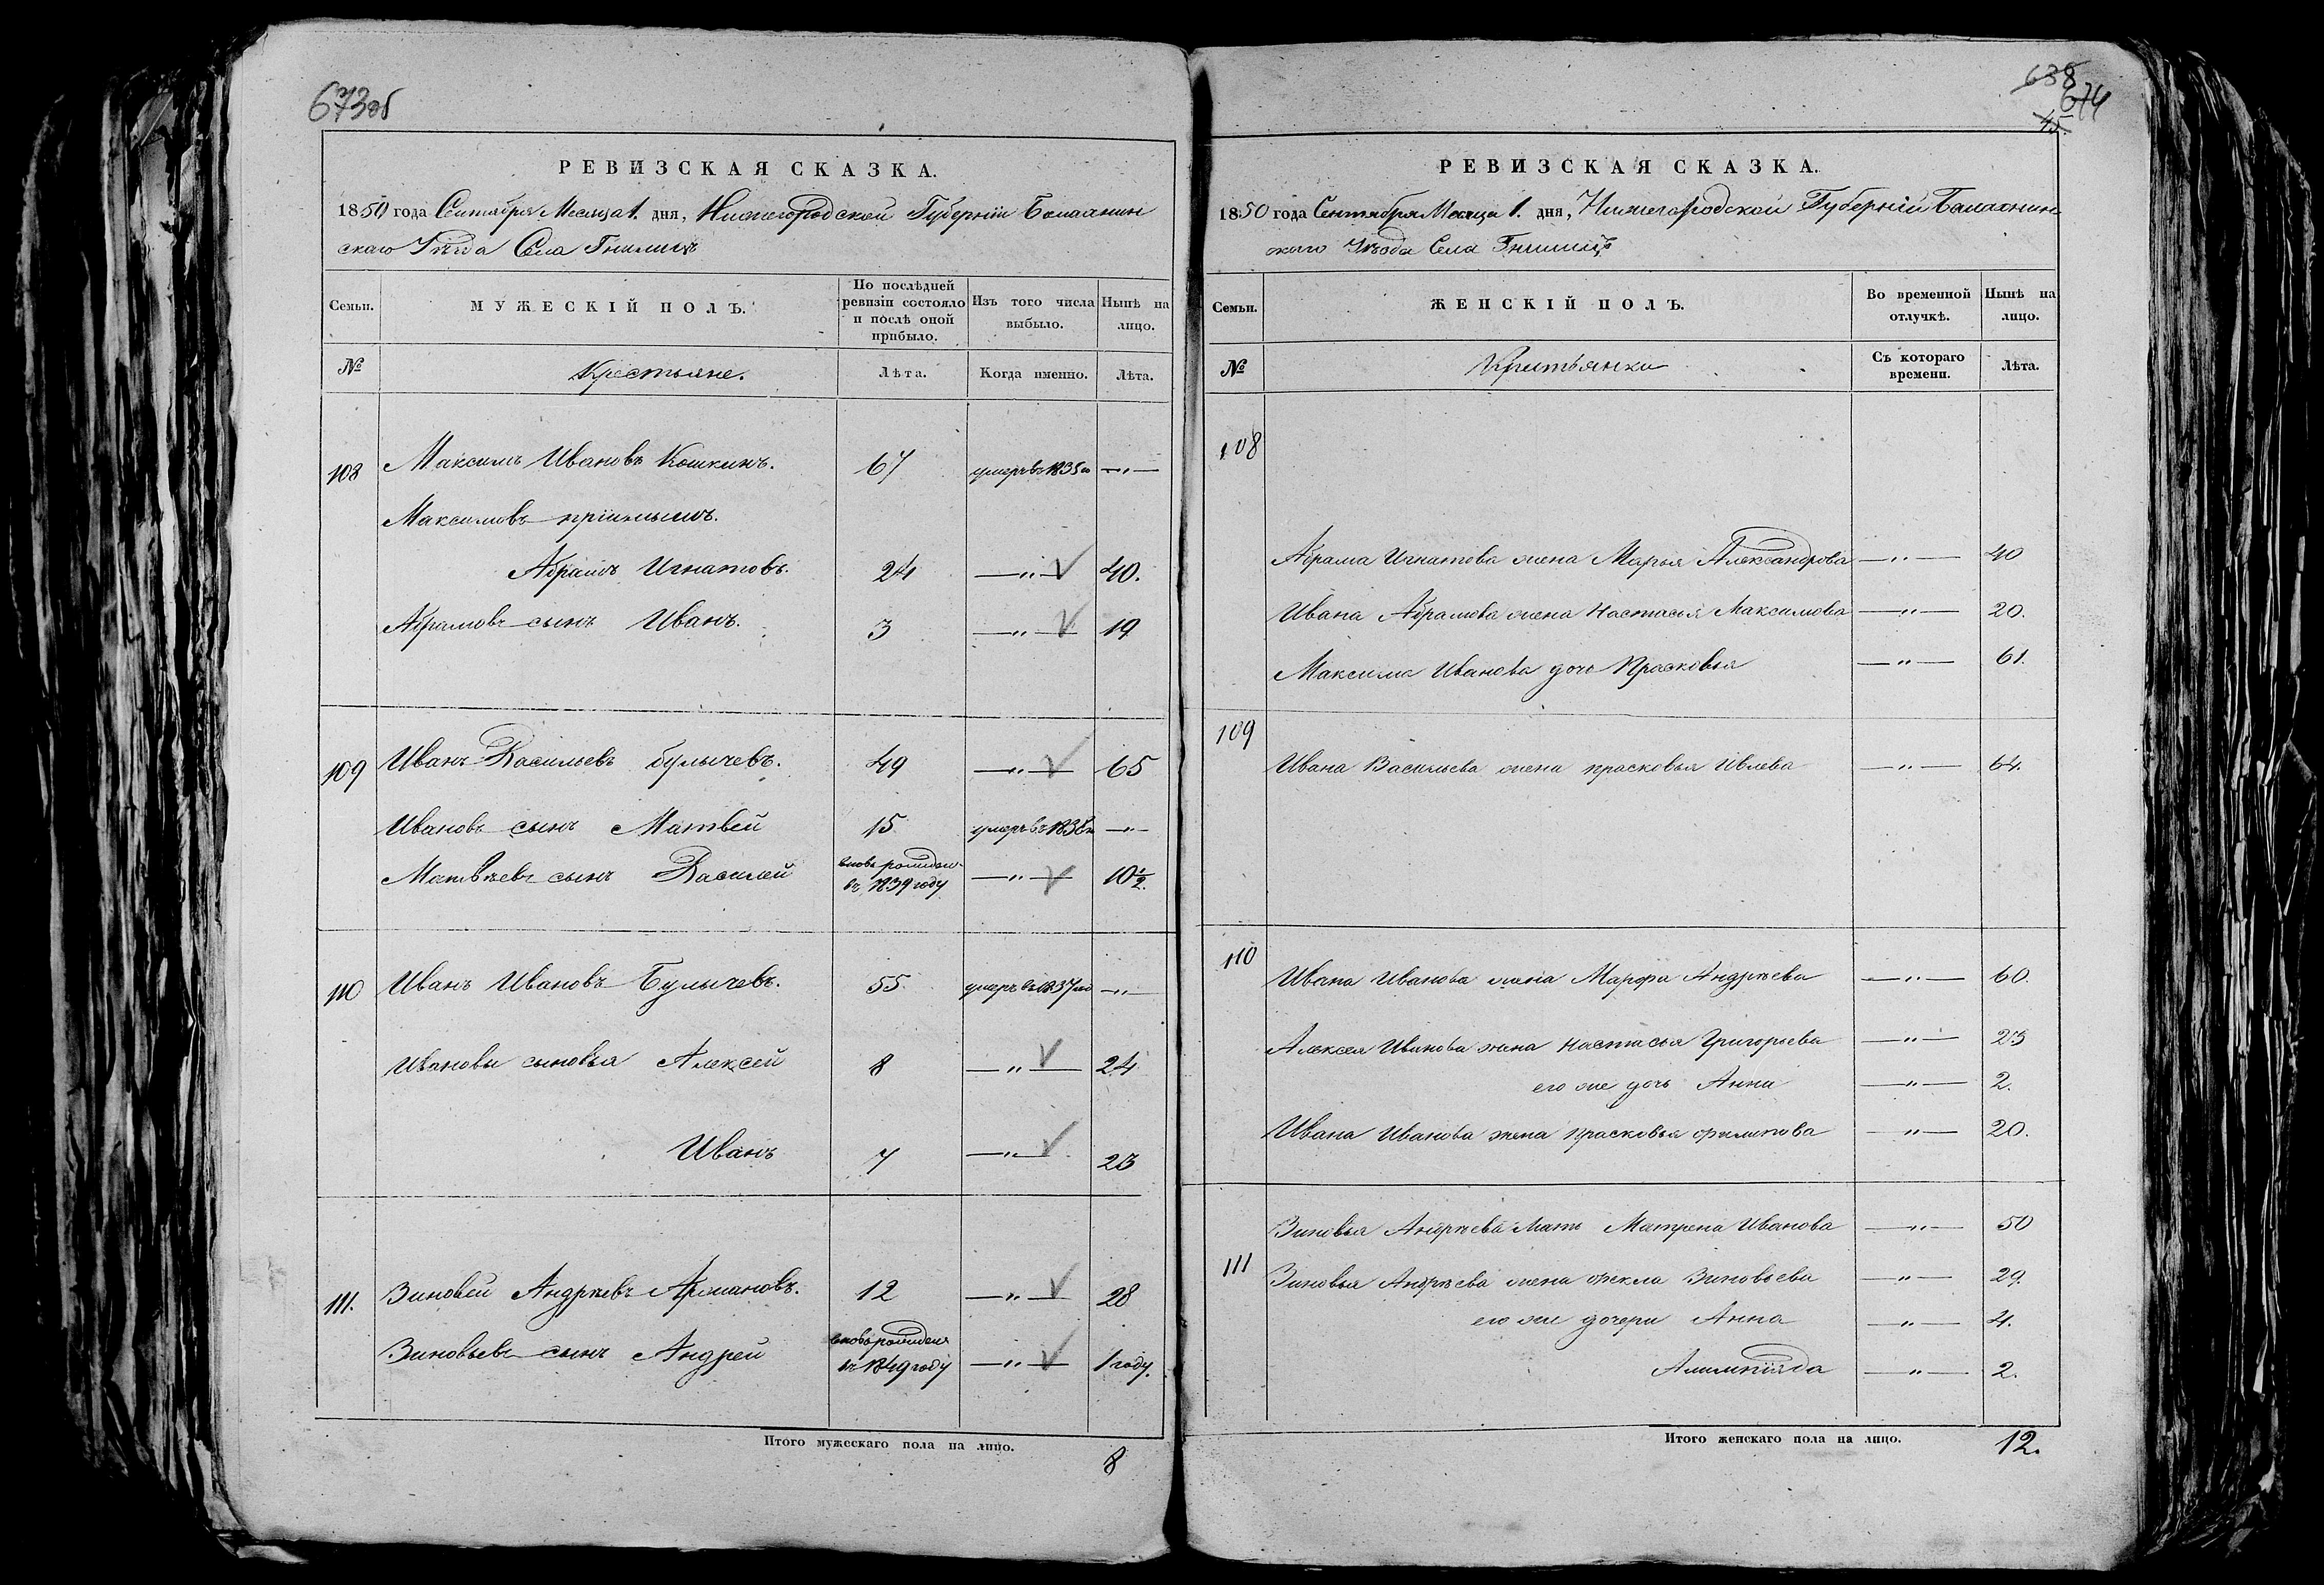 673об
РЕВИЗСКАЯ СКАЗКА.
1850 года Сентября Месяца 1. дня, Нижегородской Губернiи Балахнин
скаго Уѣзда Села Гнилицъ
Семьи.
МУЖЕСКІЙ ПОЛЪ.
По послѣдней ревизіи состояло и послѣ оной прибыло.
Изъ того числа выбыло.
Нынѣ на лицо.
№
Крестьяне.
Лѣта.
Когда именно.
Лѣта.
108 Максимъ Ивановъ Кошкинъ. 67 умеръ въ 1835 —"—
Максимовъ прiимышъ.
Абрамъ Игнатовъ. 24 —"— V 40.
Абрамовъ сынъ Иванъ. 3 —"— V 19
109 Иванъ Васильевъ булычевъ. 49 —"— V 65
Ивановъ сынъ Матвей 15 умеръ въ —"—
Матвѣевъ сынъ Василей вновь рожден въ 1839 году —"— V 10 1/2.
110 Иванъ Ивановъ Булычевъ. 55 умеръ въ 1837 —"—
Ивановы сыновья Алексей 8 —"— V 24
Иванъ 7 —"— V 23
111. Зиновей Андрѣевъ 12 —"— V 28
Зиновьевъ сынъ Андрей вновь рожденъ въ 1849 году —"— V 1 году.
Итого мужескаго пола на лицо. 8
638
674
45.
РЕВИЗСКАЯ СКАЗКА.
1850 года Сентября Месяца 1. дня, Нижегородской Губернiи Балахнин-
скаго Уѣзда Села Гнилицъ
Семьи.
ЖЕНСКІЙ ПОЛЪ.
Во временной отлучкѣ.
Нынѣ на лицо.
№
Крестьянки
Съ котораго времени.
Лѣта.
108
Абрама Игнатова жена Марья Александрова —"— 40
Ивана Абрамова жена Настасья Максимова —"— 20.
Максима Иванова дочь Прасковья —"— 61.
109
Ивана Васильева жена прасковья Ивлева —"— 64.
110
Ивана Иванова жена Марфа Андрѣева —"— 60.
Алексея Иванова жена настасья Григорьева —"— 23
его же дочь Анна —"— 2.
Ивана Иванова жена прасковья филипова —"— 20.
Зиновья Андрѣева мать Матрена Иванова —"— 50
111 Зиновья Андрѣева жена фекла Зиновьева —"— 29.
его же дочери Анна —"— 4.
Алимпiяда —"— 2.
Итого женскаго пола на лицо. 12.